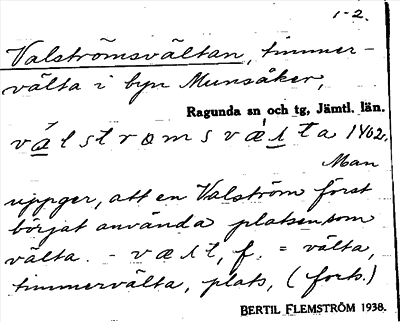 1-2.
Valströmsvältan, timmer-
välta i byn Munsåker,
Ragunda sn och tg, Jämtl. län.
válstromsvælta 1402.
Man
uppger, att en Valström först
börjat använda platsen som
välta. - vælt, f. = välta,
timmervälta, plats, (forts.)
BERTIL FLEMSTRÖM 1938.